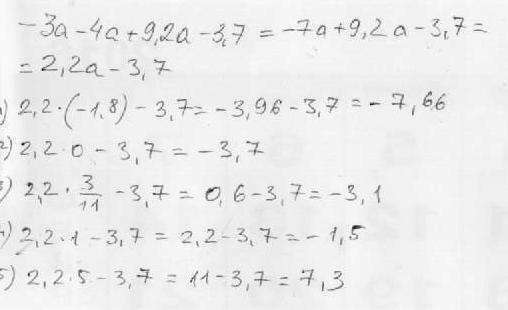 -3a-4a+9,2a-3,7 = -7a+9,2a-3,7=
=2,2a-3,7
1) 2,2·(-1,8)-3,7=-3,96-3,7=-7,66
2) 2,2·0-3,7=-3,7
3) 2,2·3/11-3,7=0,6-3,7=-3,1
4) 2,2·1-3,7=2,2-3,7=-1,5
5) 2,2·5-3,7=11-3,7=7,3